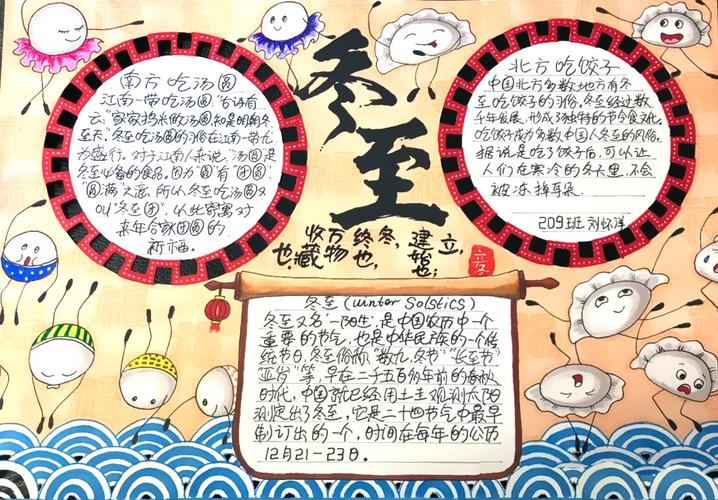 冬至
南方吃汤圆
江南一带吃汤圆古语有
云:"家家捣米做汤圆,知是明朝冬
至天。冬至吃汤圆的习俗在江南一带尤
为盛行。对于江南人来说,汤圆是
冬至必备的食品。因为"圆"有"团圆"
"圆满"之意,所以冬至吃汤圆又
叫"冬至团",以此寄寓对
来年合家团圆的
祈福。
北方吃饺子
中国北方多数地方有冬
至吃饺子的习俗,冬至经过数
千年发展,形成了独特的节令食文化。
吃饺子成为多数中国人冬至的风俗。
据说是吃了饺子后,可以让
人们在寒冷的冬天里,不会
被冻掉耳朵.
209班 刘怀洋
立,建冬,终万收
也,始也,物藏也,
冬至 (winter Solstics)
冬至又名"一阳生",是中国农历中一个
重要的节气,也是中华民族的一个传
统节日,冬至俗称"数九、冬节""长至节"
"亚岁"等,早在二千五百多年前的春秋
时代,中国就已经用土圭观测太阳
测定出了冬至,它是二十四节气中最早
制订出的一个,时间在每年的公历
12月21-23日。